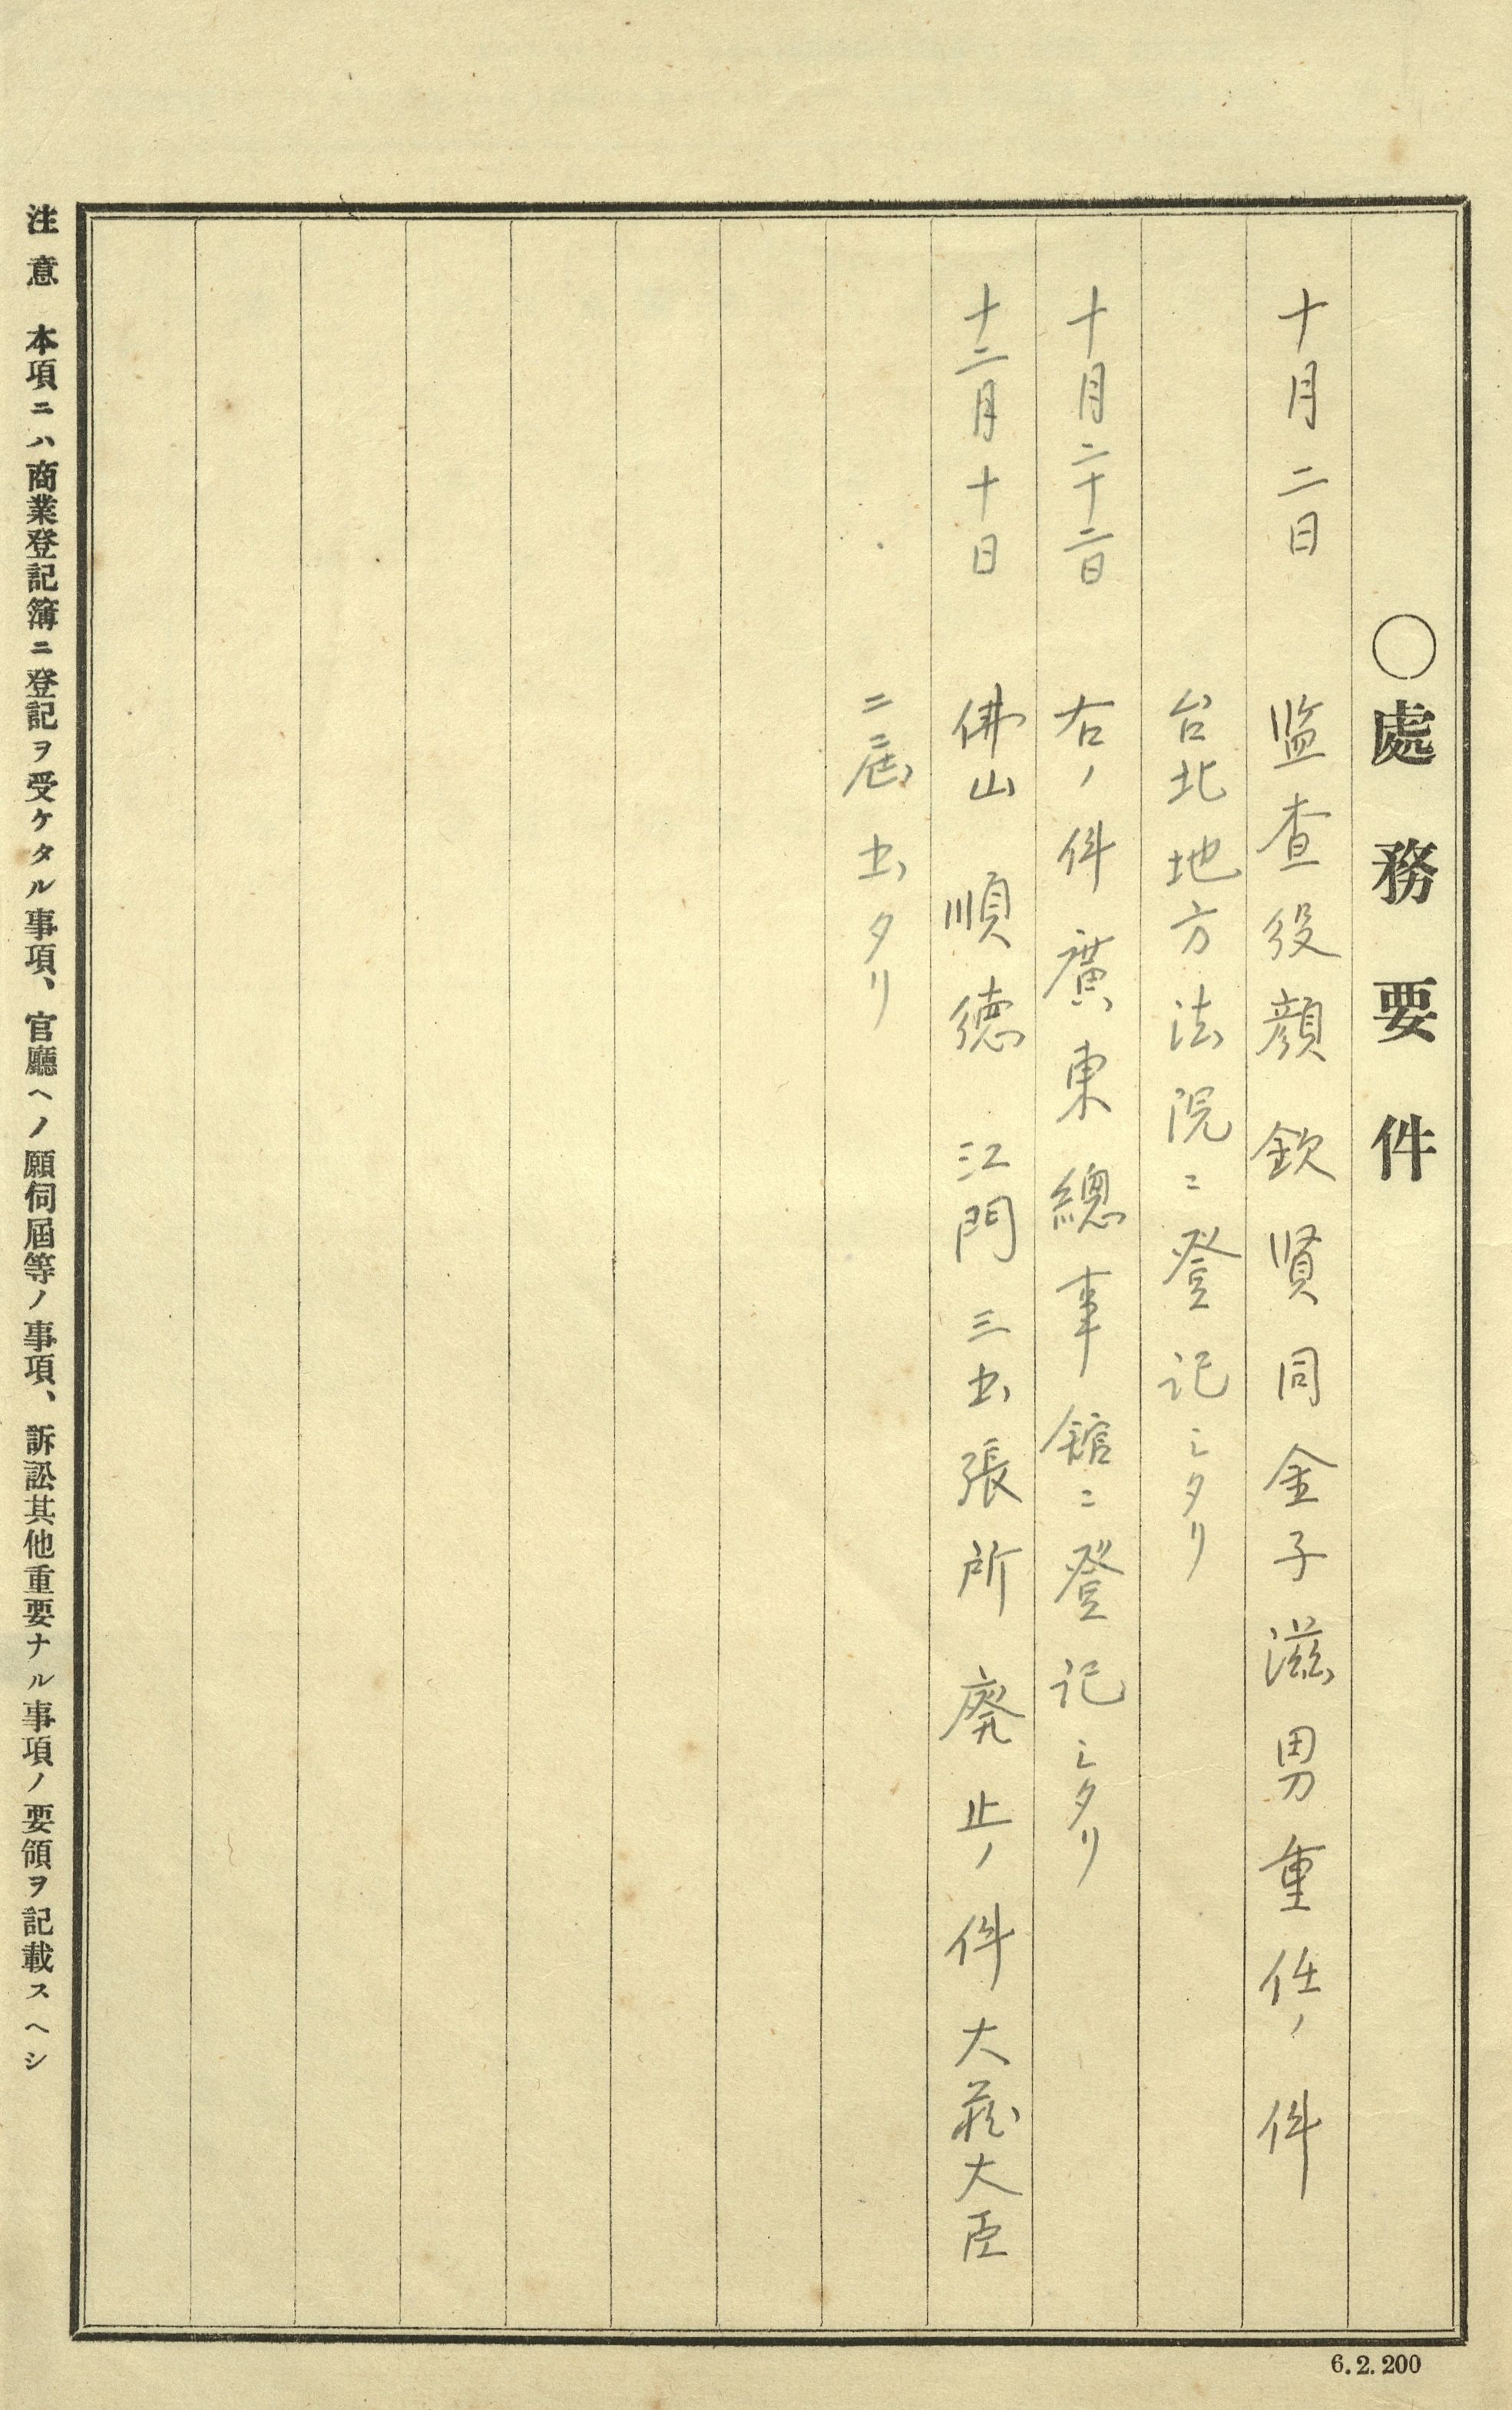 〇處務要件
十月二日 监査役顔欽賢同金子滋男重任ノ件
台北地方法院ニ登記シタリ
十月二十二日 右ノ件廣東總事館ニ登記シタリ
十二月十日 佛山順德江門三出張所廃止ノ件大蔵大臣
ニ届出タリ
注意 本項ニハ商業登記簿ニ登記ヲ受ケタル事項、官廳ヘノ願伺屆等ノ事項、訴訟其他重要ナル事項ノ要領ヲ記載スヘシ
6.2.200